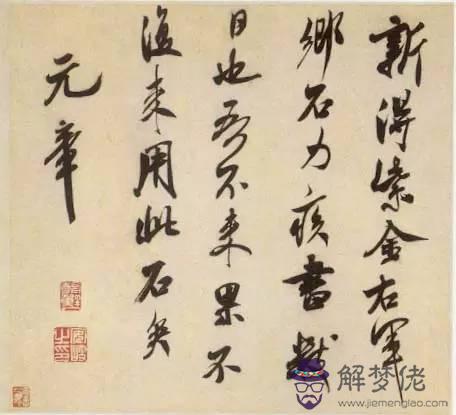 新得紫金右軍
鄉石力疾書數
日也吾不來果不
復來用此石矣
元章
解夢佬
www.jiemenglao.com